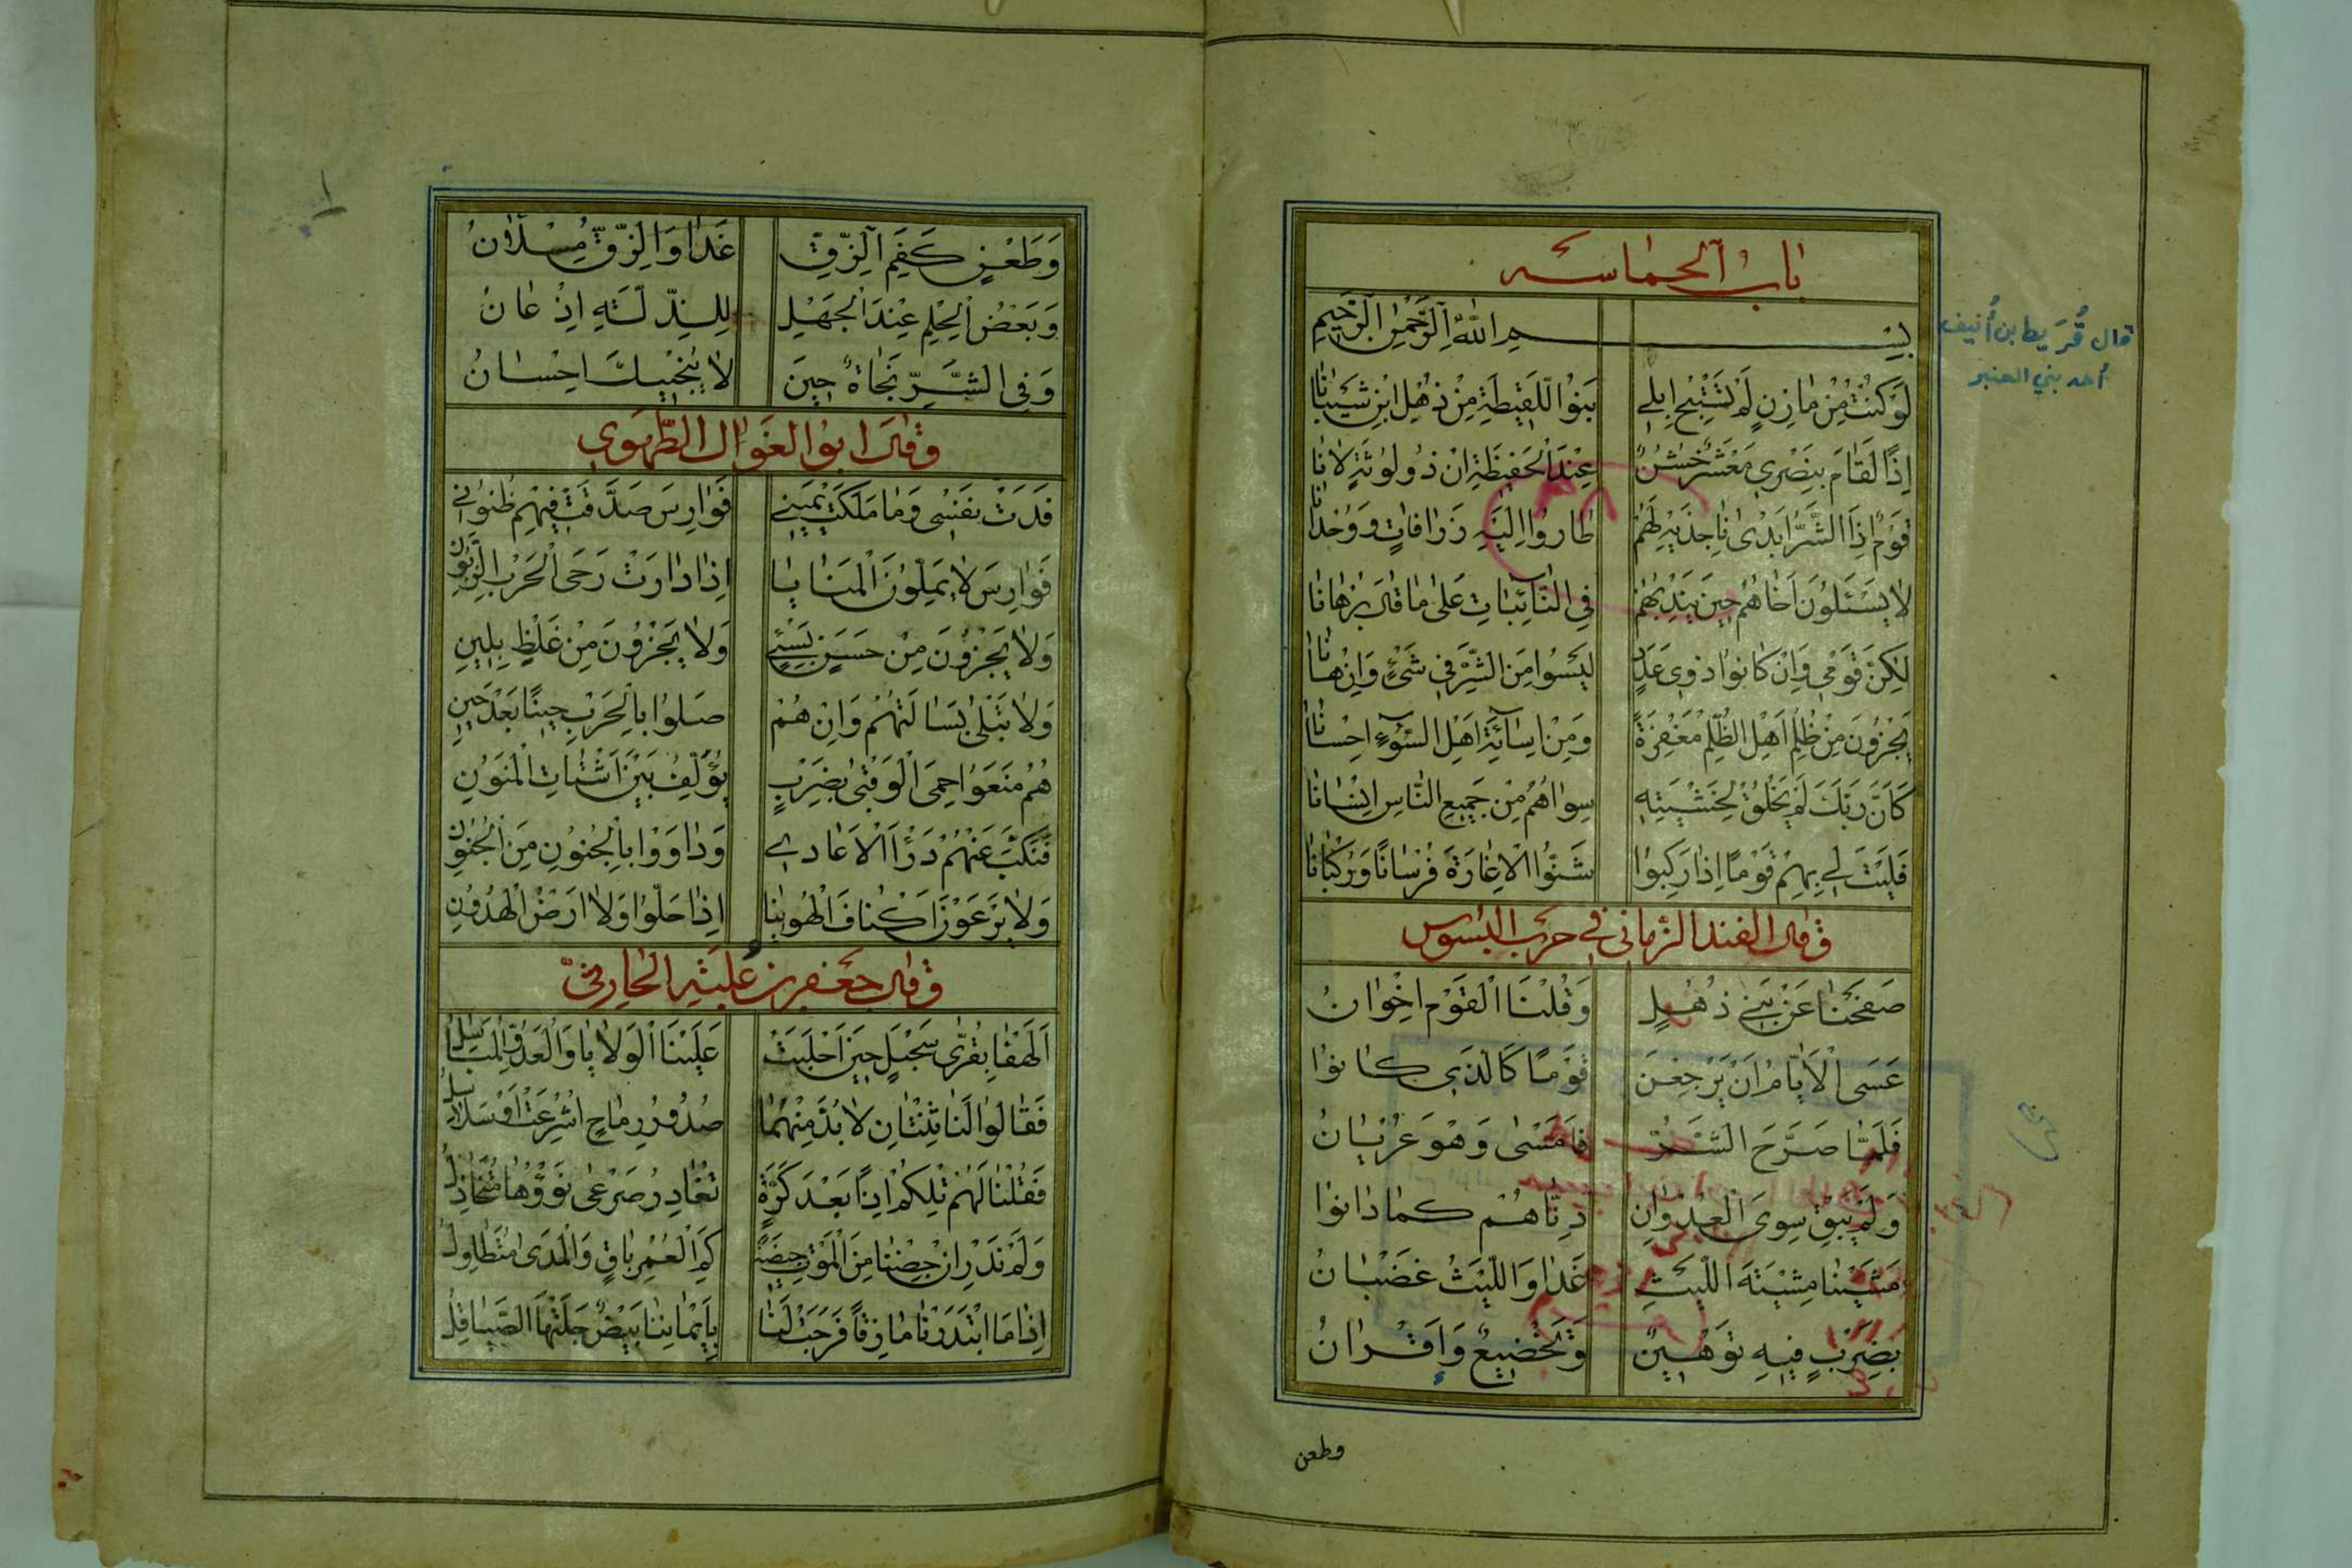 باب الحماسه
بِسْمِ اللهِ الرَّحْمٰنِ الرَّحِيمِ
قال قُرَيط بن أُنيف
أحد بني العنبر
لَوْ كُنْتُ مِنْ مازِنٍ لَمْ تَسْتَبِحْ اِبِلِي بَنُوا اللَّقِيطَةِ مِنْ ذُهْلِ ابْنِ شَيْبانا
اِذًا لَقَامَ بِنَصْرِي مَعْشَرٌ خُشُنٌ عِنْدَ الْحَفِيظَةِ اِنْ ذُو لُوثَةٍ لانا
قَوْمٌ اِذَا الشَّرُّ اَبْدىٰ ناجِذَيْهِ لَهُمْ طارُوا اِلَيْهِ زَرافاتٍ وَوُحْدانا
لا يَسْئَلُونَ اَخاهُمْ حِينَ يَنْدُبُهُمْ فِي النّائِباتِ عَلىٰ ما قالَ بُرْهانا
لٰكِنَّ قَوْمِي وَاِنْ كانُوا ذَوِي عَدَدٍ لَيْسُوا مِنَ الشَّرِّ فِي شَيْءٍ وَاِنْ هانا
يَجْزُونَ مِنْ ظُلْمِ اَهْلِ الظُّلْمِ مَغْفِرَةً وَمِنْ اِسائَةِ اَهْلِ السُّوۤءِ اِحْسانا
كَاَنَّ رَبَّكَ لَمْ يَخْلُقْ لِخَشْيَتِهِ سِواهُمُ مِنْ جَمِيعِ النّاسِ اِنْسانا
فَلَيْتَ لِي بِهِمُ قَوْمًا اِذا رَكِبُوا شَنُّوا الْاِغارَةَ فُرْسانًا وَرُكْبانا
وقال الفند الزماني في حرب البسوس
صَفَحْنا عَنْ بَنِي ذُهْلٍ وَقُلْنَا الْقَوْمُ اِخْوانُ
عَسَى الْاَيّامُ اَنْ يَرْجِعْنَ قَوْمًا كَالَّذِي كانُوا
فَلَمّا صَرَّحَ الشَّرُّ فَاَمْسىٰ وَهْوَ عُرْيانُ
وَلَمْ يَبْقَ سِوَى الْعُدْوانِ دِنّاهُمْ كَما دانُوا
مَشَيْنا مِشْيَةَ اللَّيْثِ غَدا وَاللَّيْثُ غَضْبانُ
بِضَرْبٍ فِيهِ تَوْهِينٌ وَتَخْضِيعٌ وَاِقْرانُ
وطعن
وَطَعْنٍ كَفَمِ الزِّقِّ غَدا وَالزِّقُّ مِسْلَاٰنُ
وَبَعْضُ الْحِلْمِ عِنْدَ الْجَهْلِ لِلذِّلَّةِ اِذْعانُ
وَفِي الشَّرِّ نَجاةٌ حِينَ لا يُنْجِيكَ اِحْسانُ
وقال ابو الغوال الطهوي
فَدَتْ نَفْسِي وَما مَلَكَتْ يَمِينِي فَوارِسَ صَدَّقَتْ فِيهِمْ ظُنُونِي
فَوارِسَ لا يَمَلُّونَ الْمَنايا اِذا دارَتْ رَحَى الْحَرْبِ الزَّبُونِ
وَلا يَجْزُونَ مِنْ حَسَنٍ بِسَيْءٍ وَلا يَجْزُونَ مِنْ غَلْظٍ بِلِينِ
وَلا تَبْلىٰ بَسالَتُهُمْ وَاِنْ هُمْ صَلُوا بِالْحَرْبِ حِينًا بَعْدَ حِينِ
هُمُ مَنَعُوا حِمَى الْوَقْبىٰ بِضَرْبٍ يُؤَلِّفُ بَيْنَ اَشْتاتِ الْمَنُونِ
فَنَكَّبَ عَنْهُمُ دَرْءَ الْاَعادِي وَداوَوْا بِالْجُنُونِ مِنَ الْجُنُونِ
وَلا يَرْعَوْنَ اَكْنافَ الْهُوَيْنا اِذا حَلُّوا وَلا اَرْضَ الْهُدُونِ
وقال جعفر بن علبة الحارثي
اَلَهْفا بِقُرّىٰ سَحْبَلٍ حِينَ اَحْلَبَتْ عَلَيْنَا الْوَلايا وَالْعَدُوُّ الْمُباسِلُ
فَقالُوا لَنا ثِنْتانِ لا بُدَّ مِنْهُما صُدُورُ رِماحٍ اُشْرِعَتْ اَوْ سَلاسِلُ
فَقُلْنا لَهُمْ تِلْكُمْ اِذًا بَعْدَ كَرَّةٍ تُغادِرُ صَرْعىٰ نَوْؤُها مُتَخاذِلُ
وَلَمْ نَدْرِ اِنْ جِضْنا مِنَ الْمَوْتِ جِيضَةً كَمِ الْعُمْرُ باقٍ وَالْمَدىٰ مُتَطاوِلُ
اِذا مَا ابْتَدَرْنا مازِقًا فَرَجَتْ لَنا بِاَيْمانِنا بِيضٌ جَلَتْهَا الصَّياقِلُ